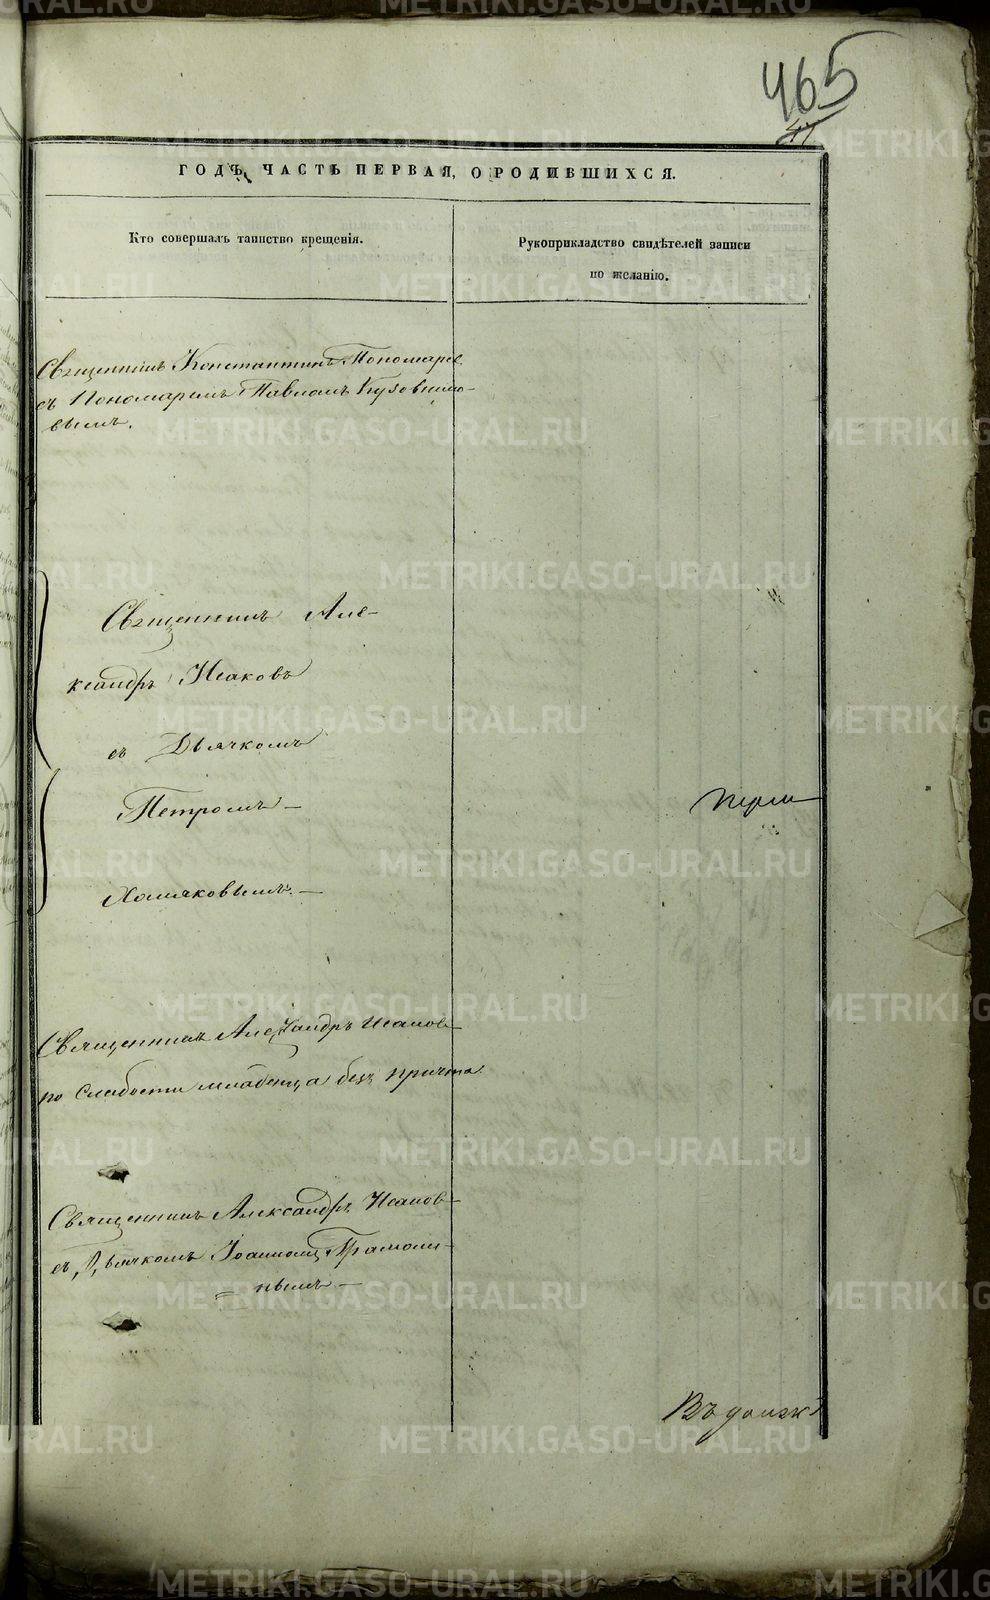 465
ГОДЪ, ЧАСТЬ ПЕРВАЯ, О РОДИВШИХСЯ.
Кто совершалъ таинство крещенія.
Рукоприкладство свидѣтелей записи
по желанію.
Священникъ Константинъ Пономарев
съ Пономаремъ Павломъ Кузовнико-
вымъ.
Священникъ Але-
ксандръ Исаковъ
съ Дьячкомъ
Петромъ
Хомяковымъ.
Священникъ Александръ Исаков
по слабости младенца безъ причта.
Священникъ Александръ Исаков
съ Дьячкомъ Іоанномъ Грамоли-
нымъ
METRIKI.GASO-URAL.RU